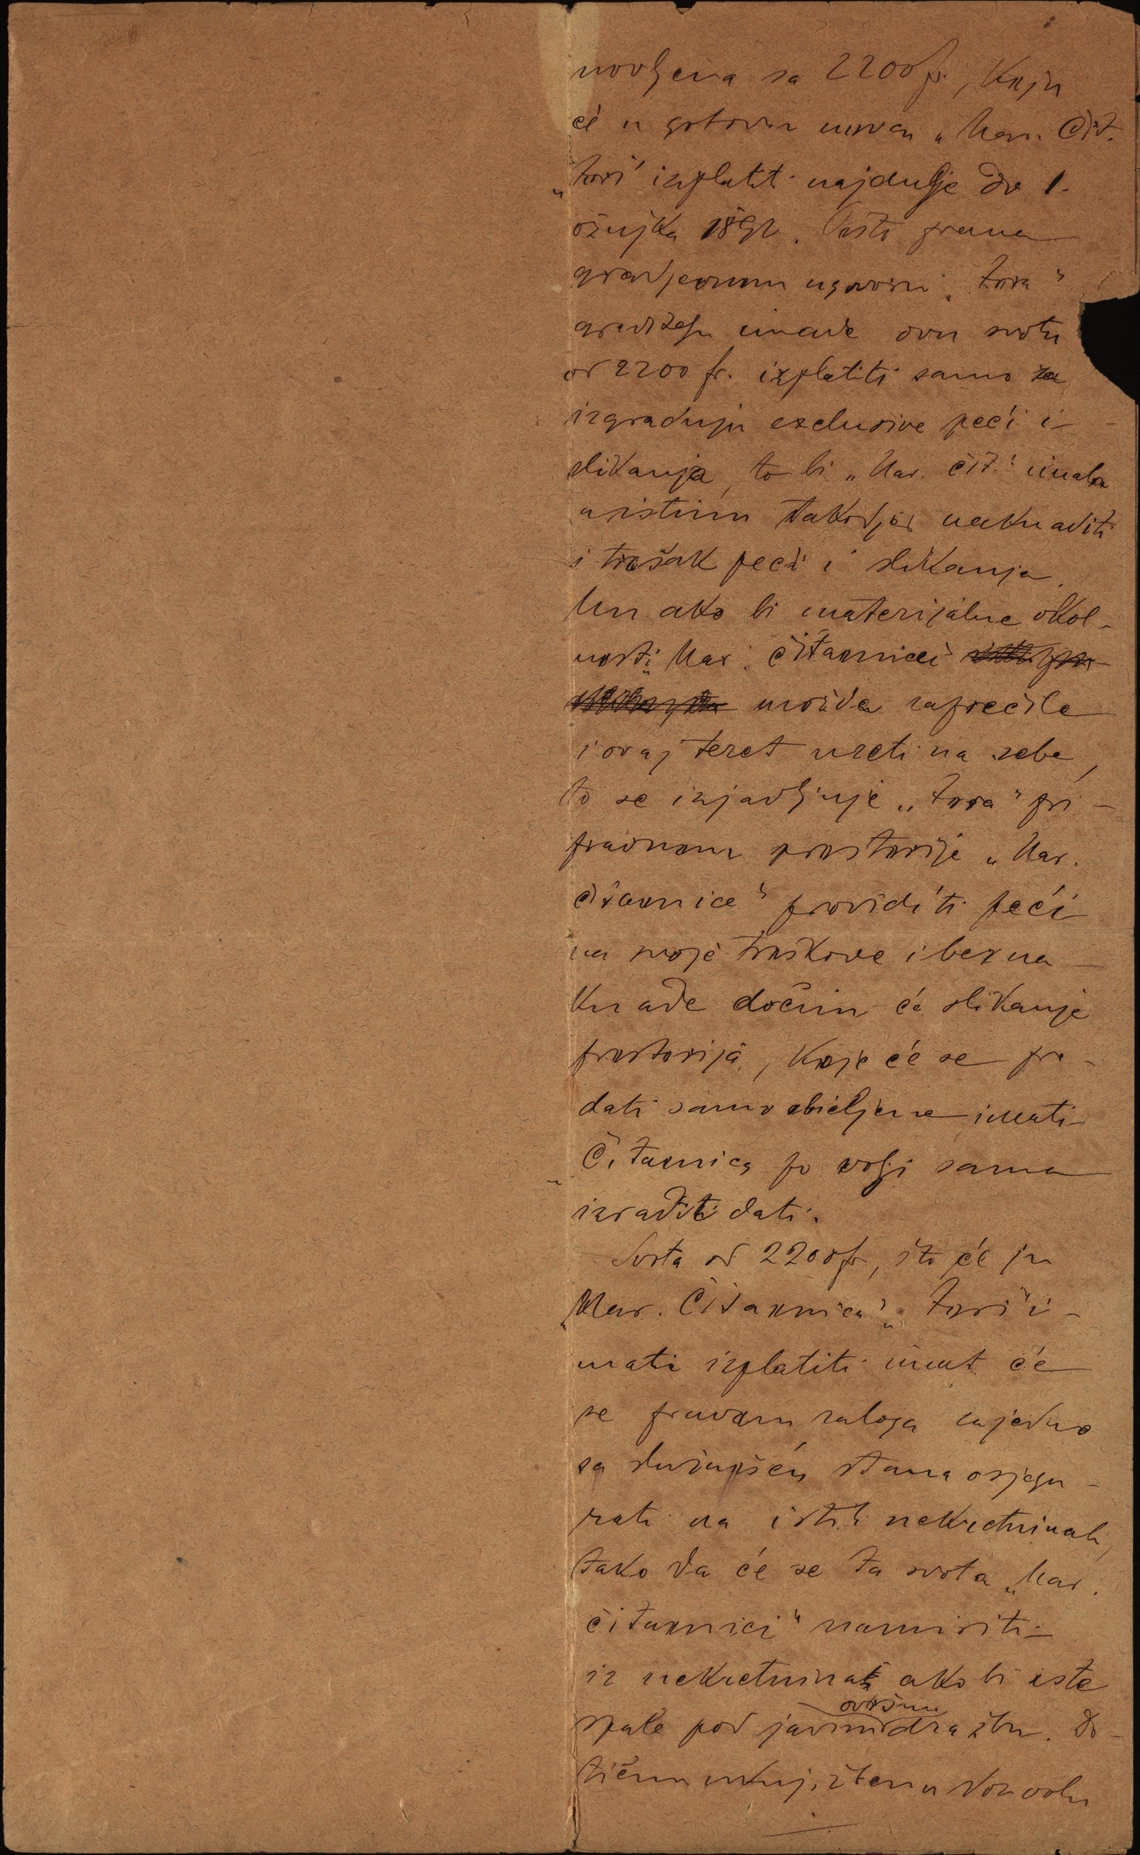 novljena sa 2200 fr., koju
će u gotovu novcu „Nar. Čit.
„Torsi" izplatit najdulje do 1.
ožujka 1892. Pošto prama
gradjevnom ugovoru „Torsa"
graditelju imade ovu svotu
od 2200 fr. izplatiti samo za
izgradnju exclusive peći i
slikanja, to bi „Nar. čit." imala
u istinu takodjer naknaditi
i trošak peći i slikanja.
Nu ako bi materijalne okol-
nosti „Nar. čitaonice
možda zapriečile
i ovaj teret uzeti na sebe,
to se izjavljuje „Torsa" pri-
pravnom prostorije „Nar.
čitaonice" providiti peći
na svoje troškove i bez na-
knade dočim će slikanje
prostorijâ, koje će se pre-
dati samo obieljene imati
Čitaonica po volji sama
izraditi dati.
Svota od 2200 fr., što će ju
„Nar. Čitaonica" „Torsi" i-
mati izplatiti imat će
se pravom zaloga zajedno
sa služnošću stana osjegu-
rati na istih nekretninah,
tako da će se ta svota „Nar.
čitaonici" namiriti
iz nekretninah ako bi iste
ovršnu
spale pod javnu dražbu. Do-
tičnu uknjižtenu dozvolu